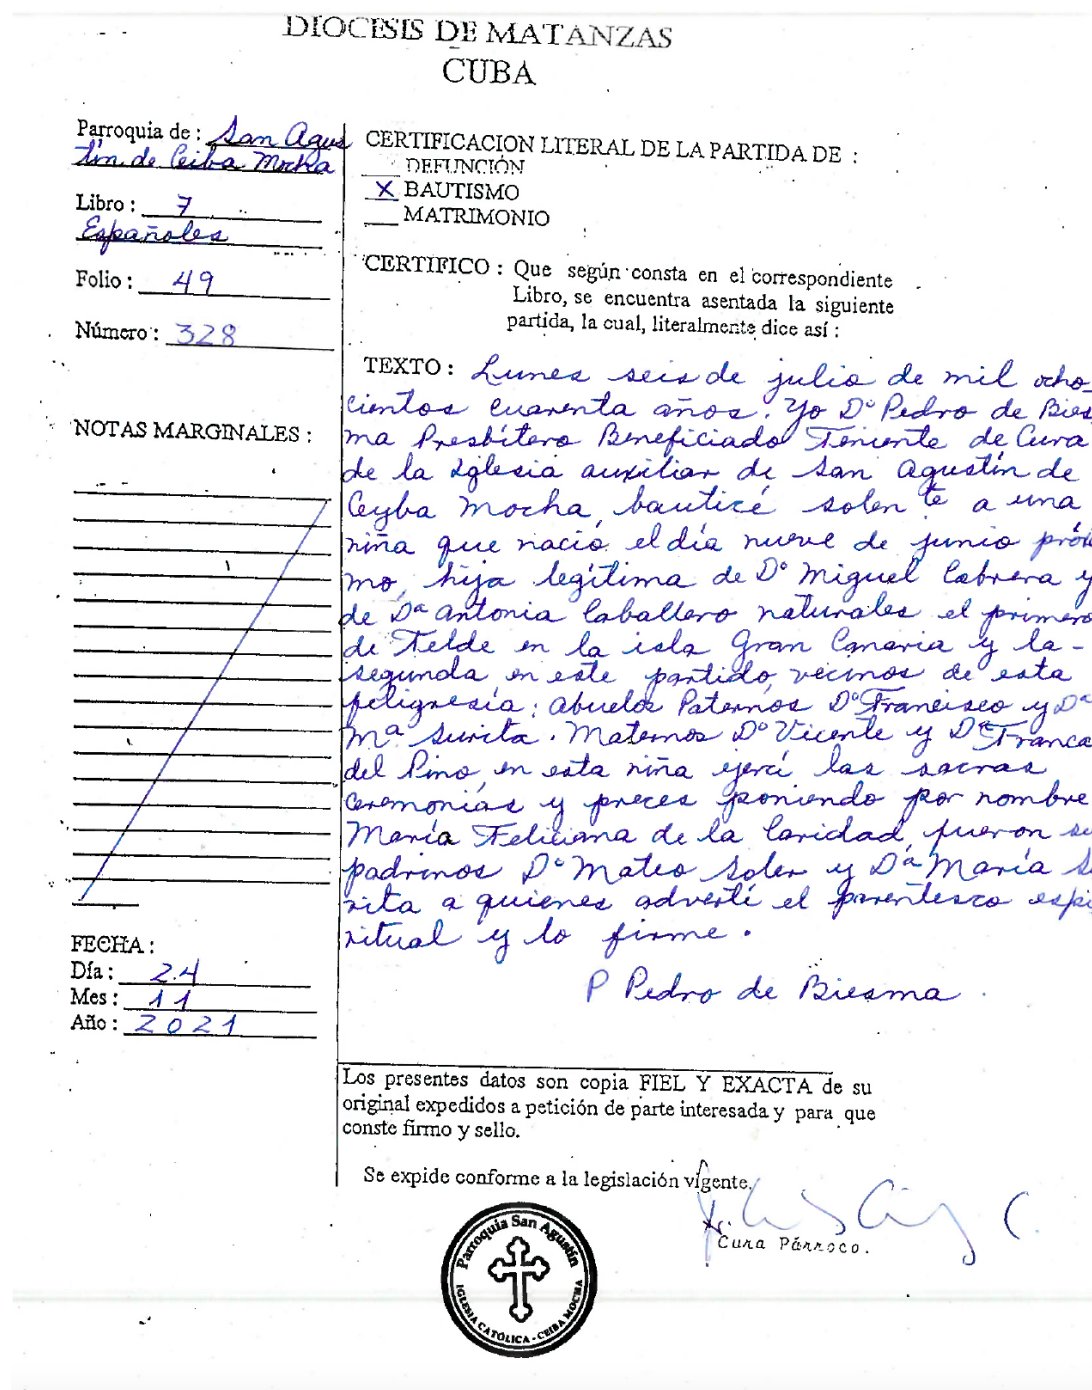 DIOCESIS DE MATANZAS
CUBA
Parroquia de : San Agus
tín de Ceiba Mocha
Libro : 7
Españoles
Folio : 49
Número : 328
NOTAS MARGINALES :
FECHA :
Día : 24
Mes : 11
Año : 2021
CERTIFICACION LITERAL DE LA PARTIDA DE :
DEFUNCIÓN
X BAUTISMO
MATRIMONIO
CERTIFICO : Que según consta en el correspondiente
Libro, se encuentra asentada la siguiente
partida, la cual, literalmente dice así :
TEXTO : Lunes seis de julio de mil ocho-
cientos cuarenta años. Yo Dº Pedro de Bies
ma Presbítero Beneficiado Teniente de Cura
de la Iglesia auxiliar de San Agustín de
Ceyba Mocha, bauticé solen te a una
niña que nació el día nueve de junio próxi
mo, hija legítima de Dº Miguel Cabrera y
de Dª Antonia Caballero naturales el primero
de Telde en la isla Gran Canaria y la -
segunda en este partido, vecinos de esta
feligresía; abuelos Paternos Dº Francisco y Dª
Mª Surita. Maternos Dº Vicente y Dª Franca
del Pino, en esta niña ejercí las sacras
ceremonias y preces poniendo por nombre
María Feliciana de la Caridad, fueron su
padrinos Dº Mateo Soler y Dª María Su
rita a quienes advertí el parentesco espi
ritual y lo firme.
P Pedro de Biesma.
Los presentes datos son copia FIEL Y EXACTA de su
original expedidos a petición de parte interesada y para que
conste firmo y sello.
Se expide conforme a la legislación vigente.
Cura Párroco.
Parroquia San Agustín
IGLESIA CATÓLICA - CEIBA MOCHA